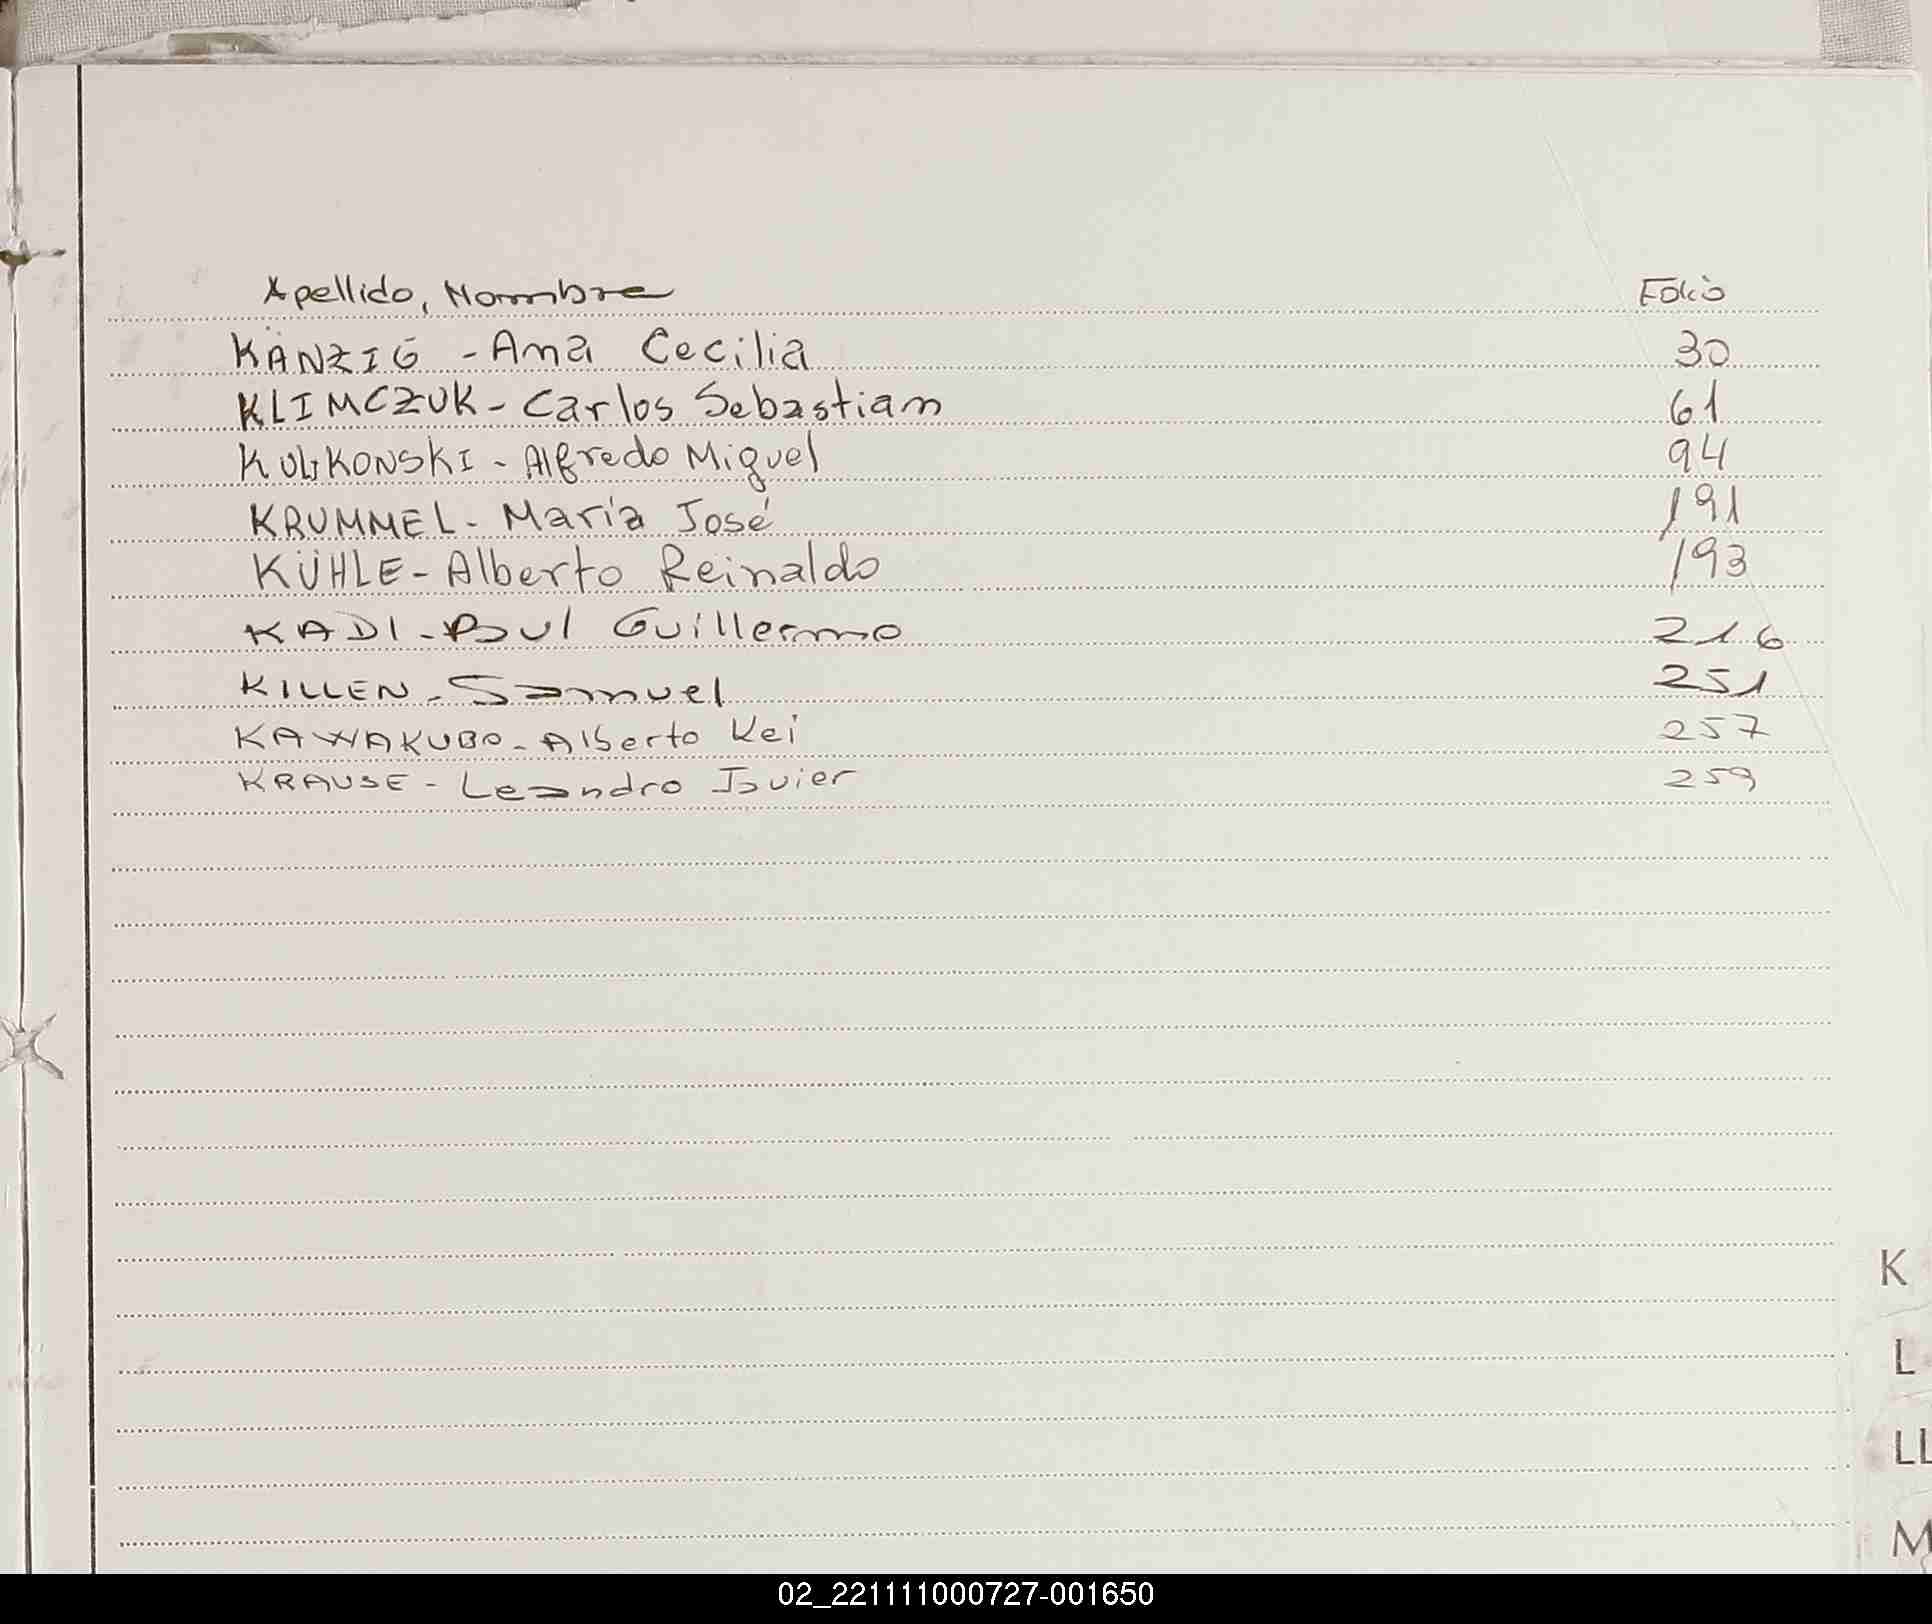 Apellido, Nombre Folio
KÄNZIG - Ana Cecilia 30
KLIMCZUK - Carlos Sebastian 61
KULIKONSKI - Alfredo Miguel 94
KRUMMEL - María José 191
KÜHLE - Alberto Reinaldo 193
KADI - Paul Guillermo 216
KILLEN - Samuel 251
KAWAKUBO - Alberto Kei 257
KRAUSE - Leandro Javier 259
K
L
LL
M
02_221111000727-001650